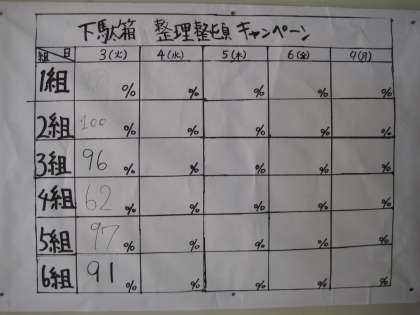 下駄箱 整理整頓 キャンペーン
組 日 3(火) 4(水) 5(木) 6(金) 9(月)
1組 % % % % %
2組 100 % % % % %
3組 96 % % % % %
4組 62 % % % % %
5組 97 % % % % %
6組 91 % % % % %